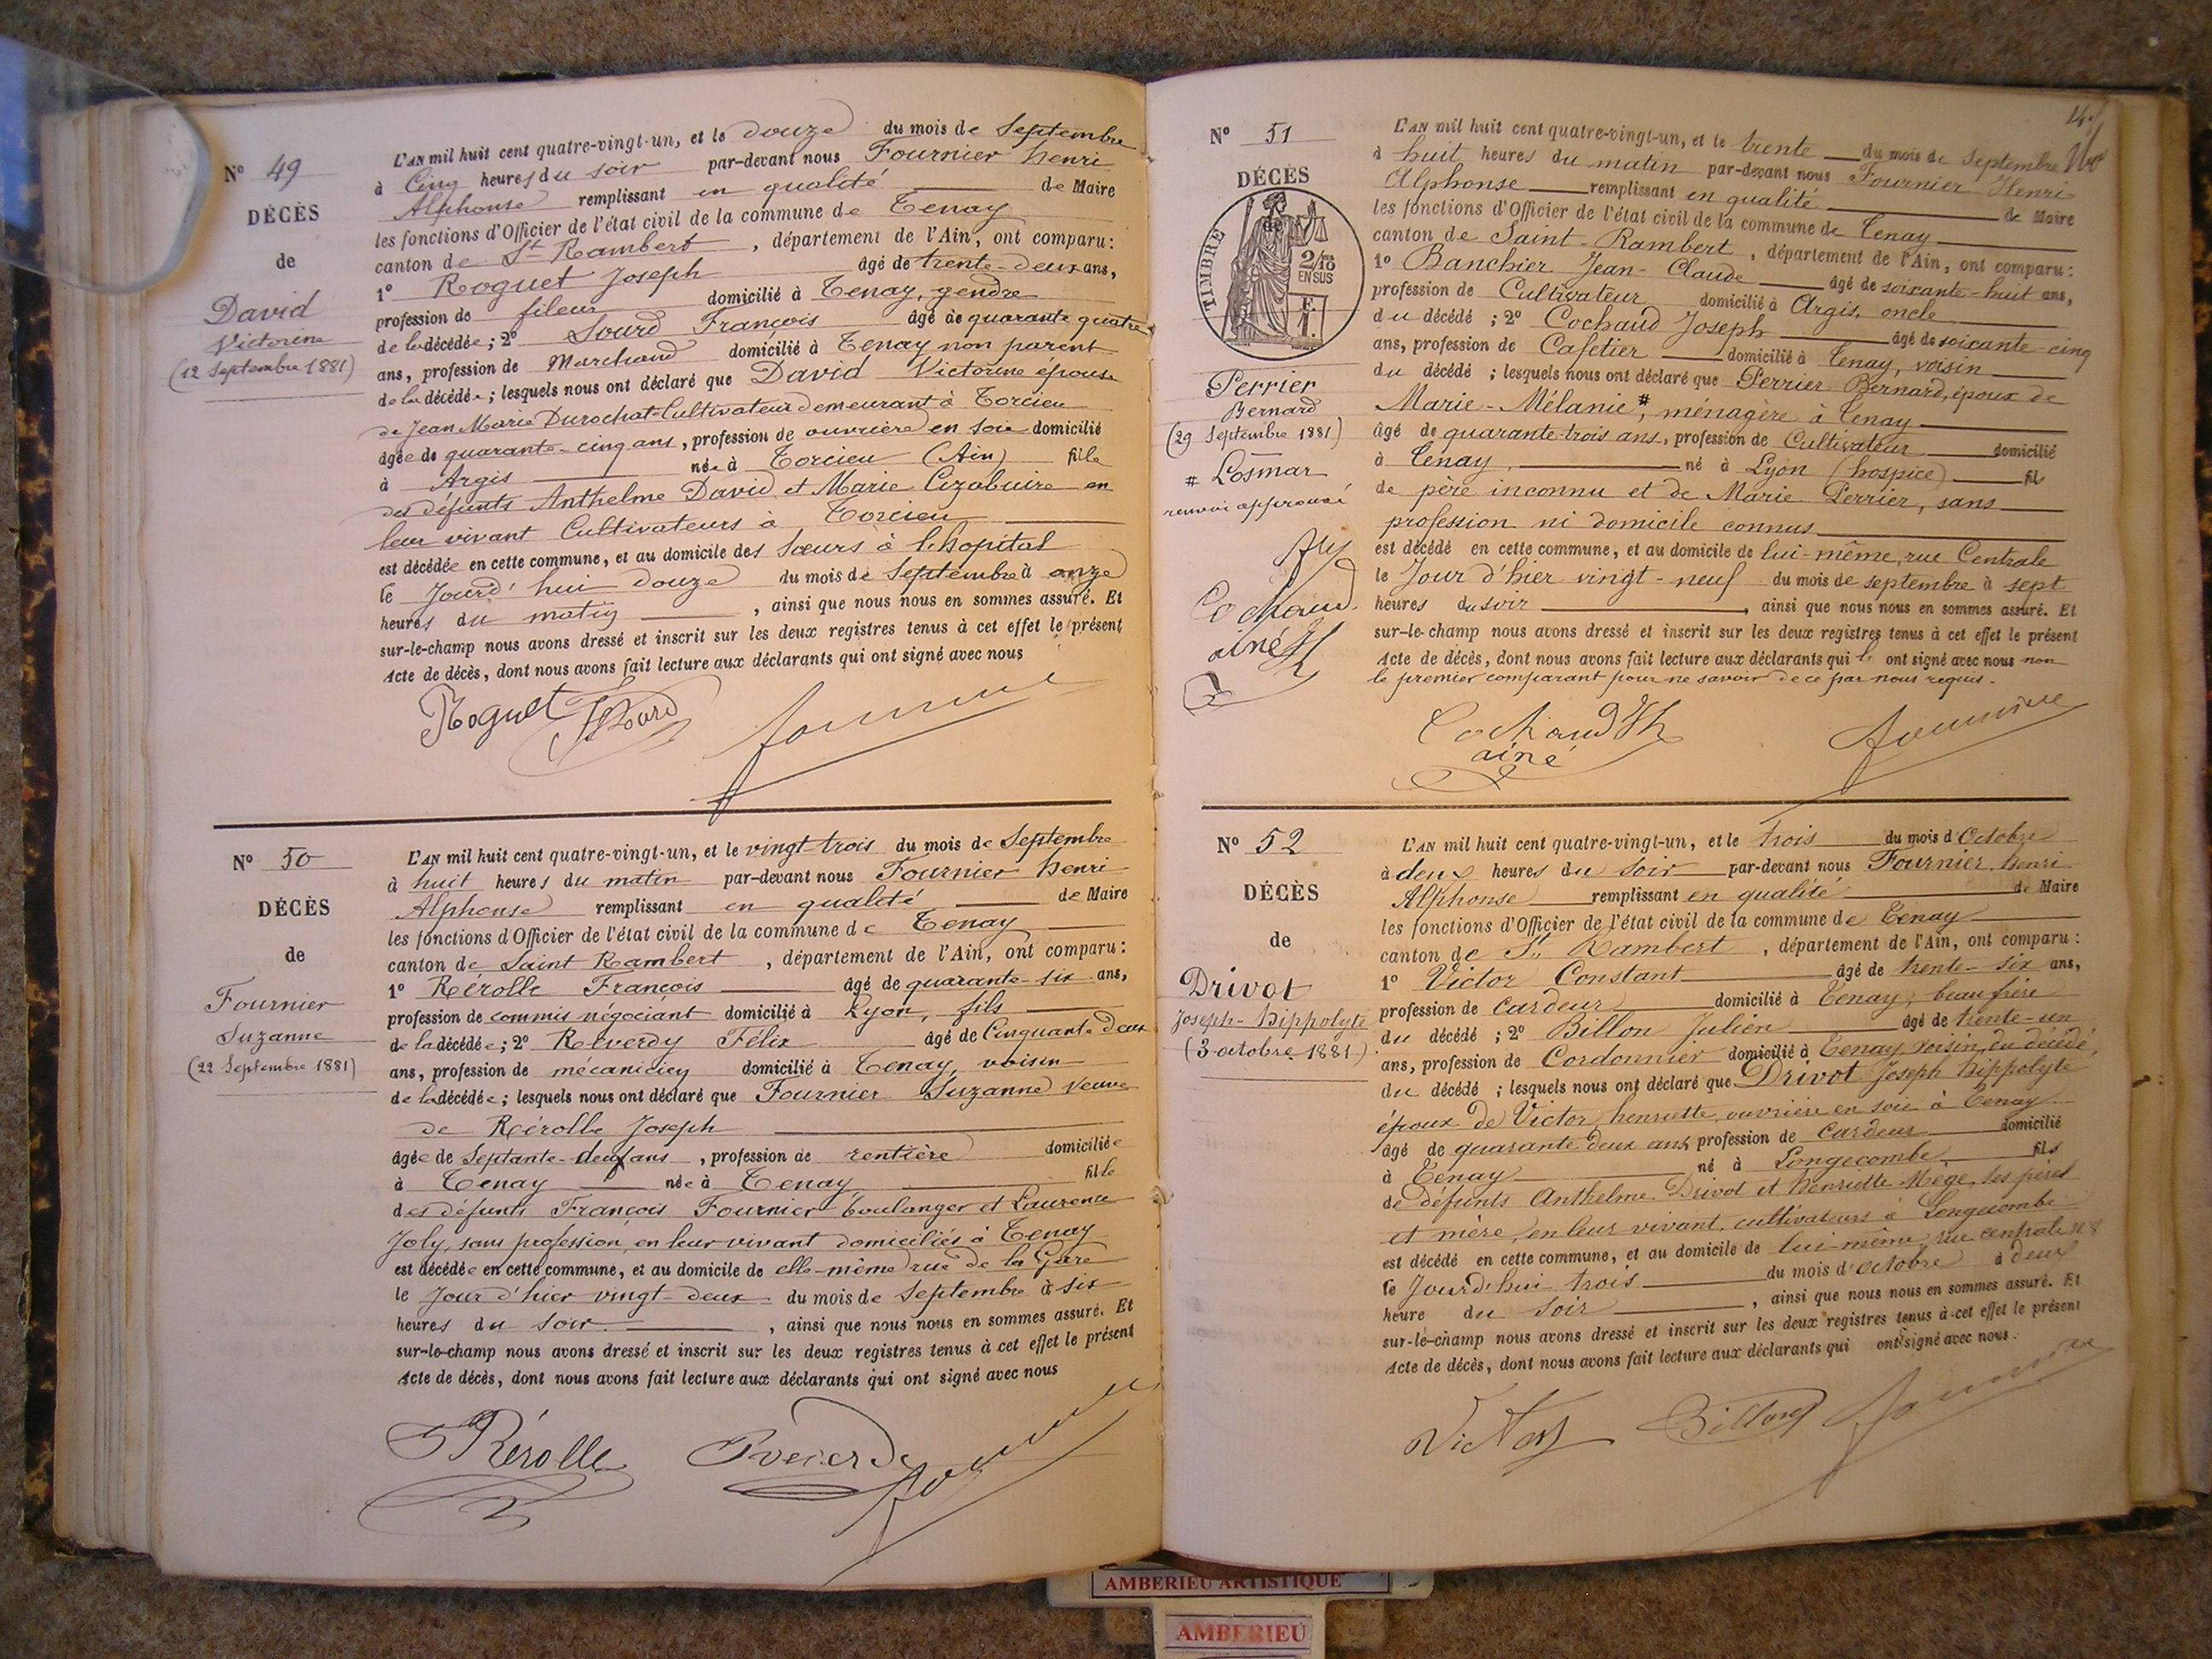 N° 49
DÉCÈS
de
David
Victorine
(12 Septembre 1881)
L'AN mil huit cent quatre-vingt-un, et le douze du mois de Septembre
à Cinq heures du soir par-devant nous Fournier henri
Alphonse remplissant en qualité de Maire
les fonctions d'Officier de l'état civil de la commune de Tenay
canton de St Rambert, département de l'Ain, ont comparu:
1° Roguet Joseph âgé de trente-deux ans,
profession de fileur domicilié à Tenay, gendre
de la décédée; 2° Sourd François âgé de quarante quatre
ans, profession de Marchand domicilié à Tenay non parent
de la décédée; lesquels nous ont déclaré que David Victorine épouse
de Jean Marie Durochat Cultivateur demeurant à Torcieu
âgée de quarante-cinq ans, profession de ouvrière en soie domicilié
à Argis née à Torcieu (Ain) fille
des défunts Anthelme David et Marie en
leur vivant Cultivateurs à Torcieu
est décédée en cette commune, et au domicile des Sœurs à l'hopital
le Jourd'hui douze du mois de Septembre à onze
heures du matin, ainsi que nous nous en sommes assuré. Et
sur-le-champ nous avons dressé et inscrit sur les deux registres tenus à cet effet le présent
Acte de décès, dont nous avons fait lecture aux déclarants qui ont signé avec nous
Roguet Sourd Fournier
N° 50
DÉCÈS
de
Fournier
Suzanne
(22 Septembre 1881)
L'AN mil huit cent quatre-vingt-un, et le vingt-trois du mois de Septembre
à huit heures du matin par-devant nous Fournier henri
Alphonse remplissant en qualité de Maire
les fonctions d'Officier de l'état civil de la commune de Tenay
canton de Saint Rambert, département de l'Ain, ont comparu:
1° Rérolle François âgé de quarante-six ans,
profession de commis négociant domicilié à Lyon, fils
de la décédée; 2° Reverdy Félix âgé de Cinquante deux
ans, profession de mécanicien domicilié à Tenay, voisin
de la décédée; lesquels nous ont déclaré que Fournier Suzanne veuve
de Rérolle Joseph
âgée de Septante-deux ans, profession de rentière domiciliée
à Tenay née à Tenay fille
des défunts François Fournier boulanger et Laurence
Joly, sans profession, en leur vivant domiciliés à Tenay
est décédée en cette commune, et au domicile de elle-même rue de la Gare
le Jour d'hier vingt-deux du mois de Septembre à six
heures du soir, ainsi que nous nous en sommes assuré. Et
sur-le-champ nous avons dressé et inscrit sur les deux registres tenus à cet effet le présent
Acte de décès, dont nous avons fait lecture aux déclarants qui ont signé avec nous
Rérolle Fournier
N° 51
DÉCÈS
de
TIMBRE
2/10 ES
EN SUS
F.
1.
Perrier
Bernard
(29 Septembre 1881)
# Losmar
renvoi approuvé
Cochaud
ainé
L'AN mil huit cent quatre-vingt-un, et le trente du mois de Septembre
à huit heures du matin par-devant nous Fournier Henri
Alphonse remplissant en qualité de Maire
les fonctions d'Officier de l'état civil de la commune de Tenay
canton de Saint-Rambert, département de l'Ain, ont comparu:
1° Banchier Jean-Claude âgé de soixante-huit ans,
profession de Cultivateur domicilié à Argis, oncle
du décédé; 2° Cochaud Joseph âgé de soixante-cinq
ans, profession de Cafetier domicilié à Tenay, voisin
du décédé; lesquels nous ont déclaré que Perrier Bernard, époux de
Marie-Mélanie #, ménagère à Tenay
âgé de quarante-trois ans, profession de Cultivateur domicilié
à Tenay, né à Lyon (hospice) fils
de père inconnu et de Marie Perrier, sans
profession ni domicile connus
est décédé en cette commune, et au domicile de lui-même, rue Centrale
le Jour d'hier vingt-neuf du mois de septembre à sept
heures du soir, ainsi que nous nous en sommes assuré. Et
sur-le-champ nous avons dressé et inscrit sur les deux registres tenus à cet effet le présent
Acte de décès, dont nous avons fait lecture aux déclarants qui ont signé avec nous non
le premier comparant pour ne savoir de ce par nous requis.
Cochaud Jh
ainé
Fournier
N° 52
DÉCÈS
de
Drivot
Joseph-hippolyte
(3 octobre 1881)
L'AN mil huit cent quatre-vingt-un, et le trois du mois d'Octobre
à deux heures du soir par-devant nous Fournier henri
Alphonse remplissant en qualité de Maire
les fonctions d'Officier de l'état civil de la commune de Tenay
canton de St Rambert, département de l'Ain, ont comparu:
1° Victor Constant âgé de trente-six ans,
profession de cardeur domicilié à Tenay, beau frère
du décédé; 2° Billon Julien âgé de trente-un
ans, profession de Cordonnier domicilié à Tenay voisin du décédé,
du décédé; lesquels nous ont déclaré que Drivot Joseph hippolyte
époux de Victor henriette, ouvrière en soie à Tenay
âgé de quarante deux ans, profession de Cardeur domicilié
à Tenay né à Longecombe fils
de défunts Anthelme Drivot et henriette Mège, les père
et mère, en leur vivant, cultivateurs à Longecombe
est décédé en cette commune, et au domicile de lui-même, rue centrale n° 8
le Jourd'hui trois du mois d'octobre à deux
heure du soir, ainsi que nous nous en sommes assuré. Et
sur-le-champ nous avons dressé et inscrit sur les deux registres tenus à cet effet le présent
Acte de décès, dont nous avons fait lecture aux déclarants qui ont signé avec nous.
Victor Billon Fournier
AMBERIEU ARTISTIQUE
AMBERIEU